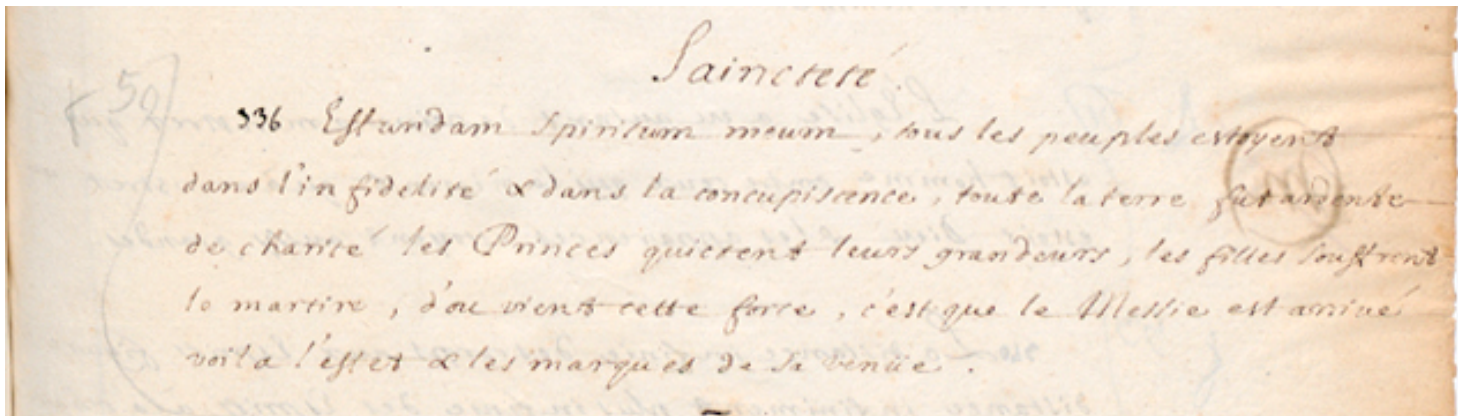 Saincteté.
59
336 Effundam spiritum meum, tous les peuples estoyent
dans l'infidelité & dans la concupiscence, toute la terre fut ardente
de charité les Princes quictent leurs grandeurs, les filles souffrent
le martire, d'ou vient cette force, c'est que le Messie est arriué
voila l'effet & les marques de sa venüe.